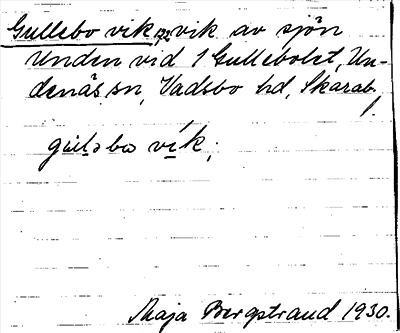 Gullebo vik, vik av sjön
Unden vid 1 Gullebolet, Un-
denäs sn, Vadsbo hd, Skarab.
gúləbω vík;
Maja Bergstrand 1930.